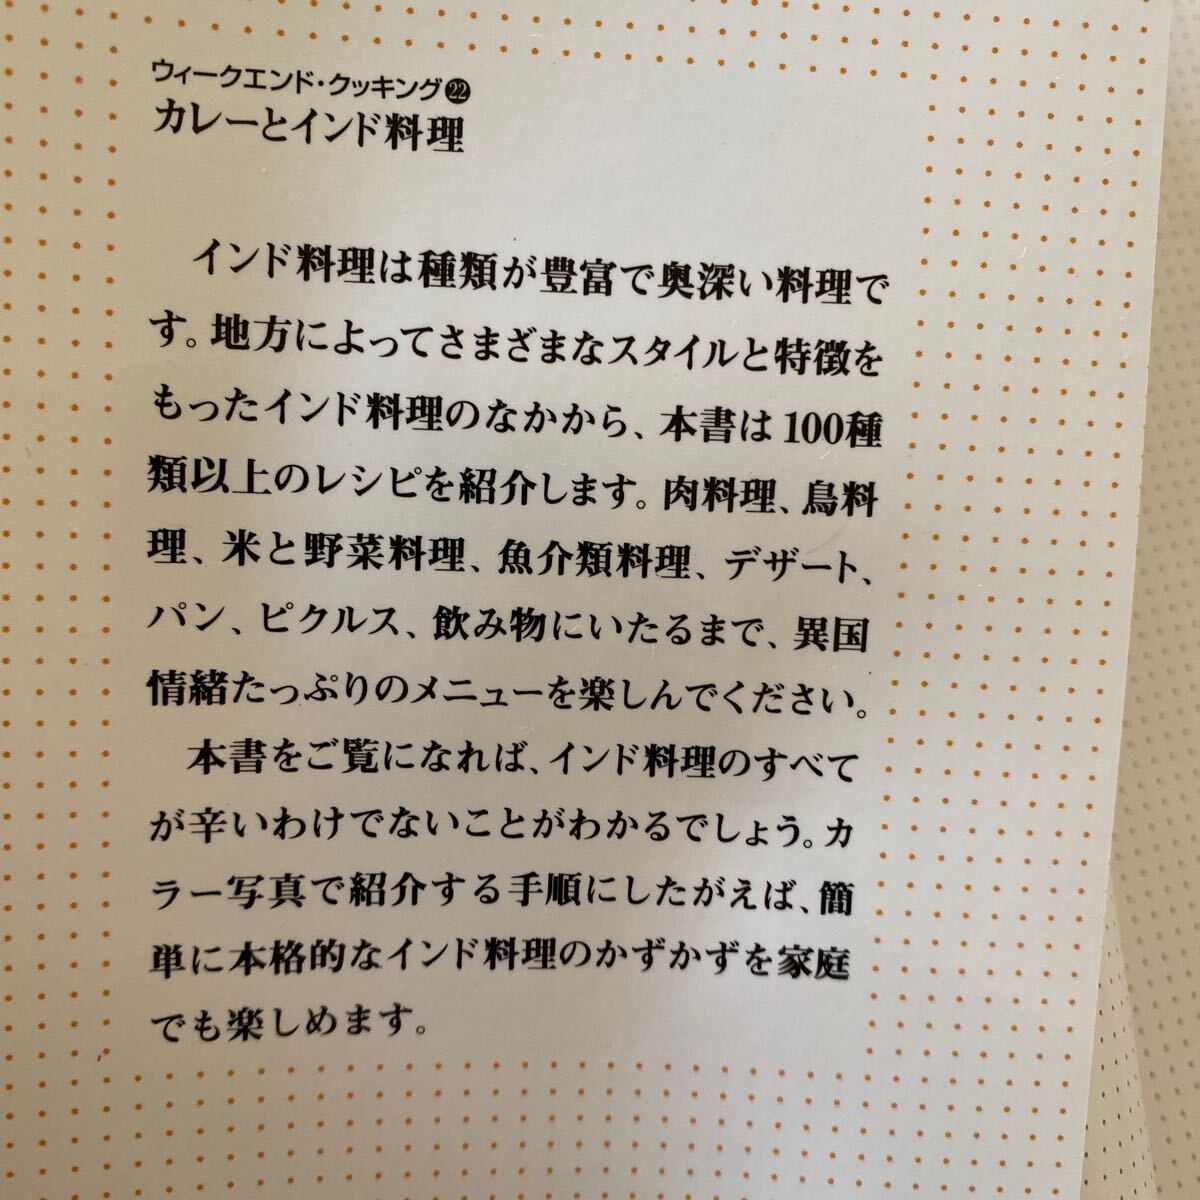 ウィークエンド・クッキング㉒
カレーとインド料理
インド料理は種類が豊富で奥深い料理で
す。地方によってさまざまなスタイルと特徴を
もったインド料理のなかから、本書は100種
類以上のレシピを紹介します。肉料理、鳥料
理、米と野菜料理、魚介類料理、デザート、
パン、ピクルス、飲み物にいたるまで、異国
情緒たっぷりのメニューを楽しんでください。
本書をご覧になれば、インド料理のすべて
が辛いわけでないことがわかるでしょう。カ
ラー写真で紹介する手順にしたがえば、簡
単に本格的なインド料理のかずかずを家庭
でも楽しめます。